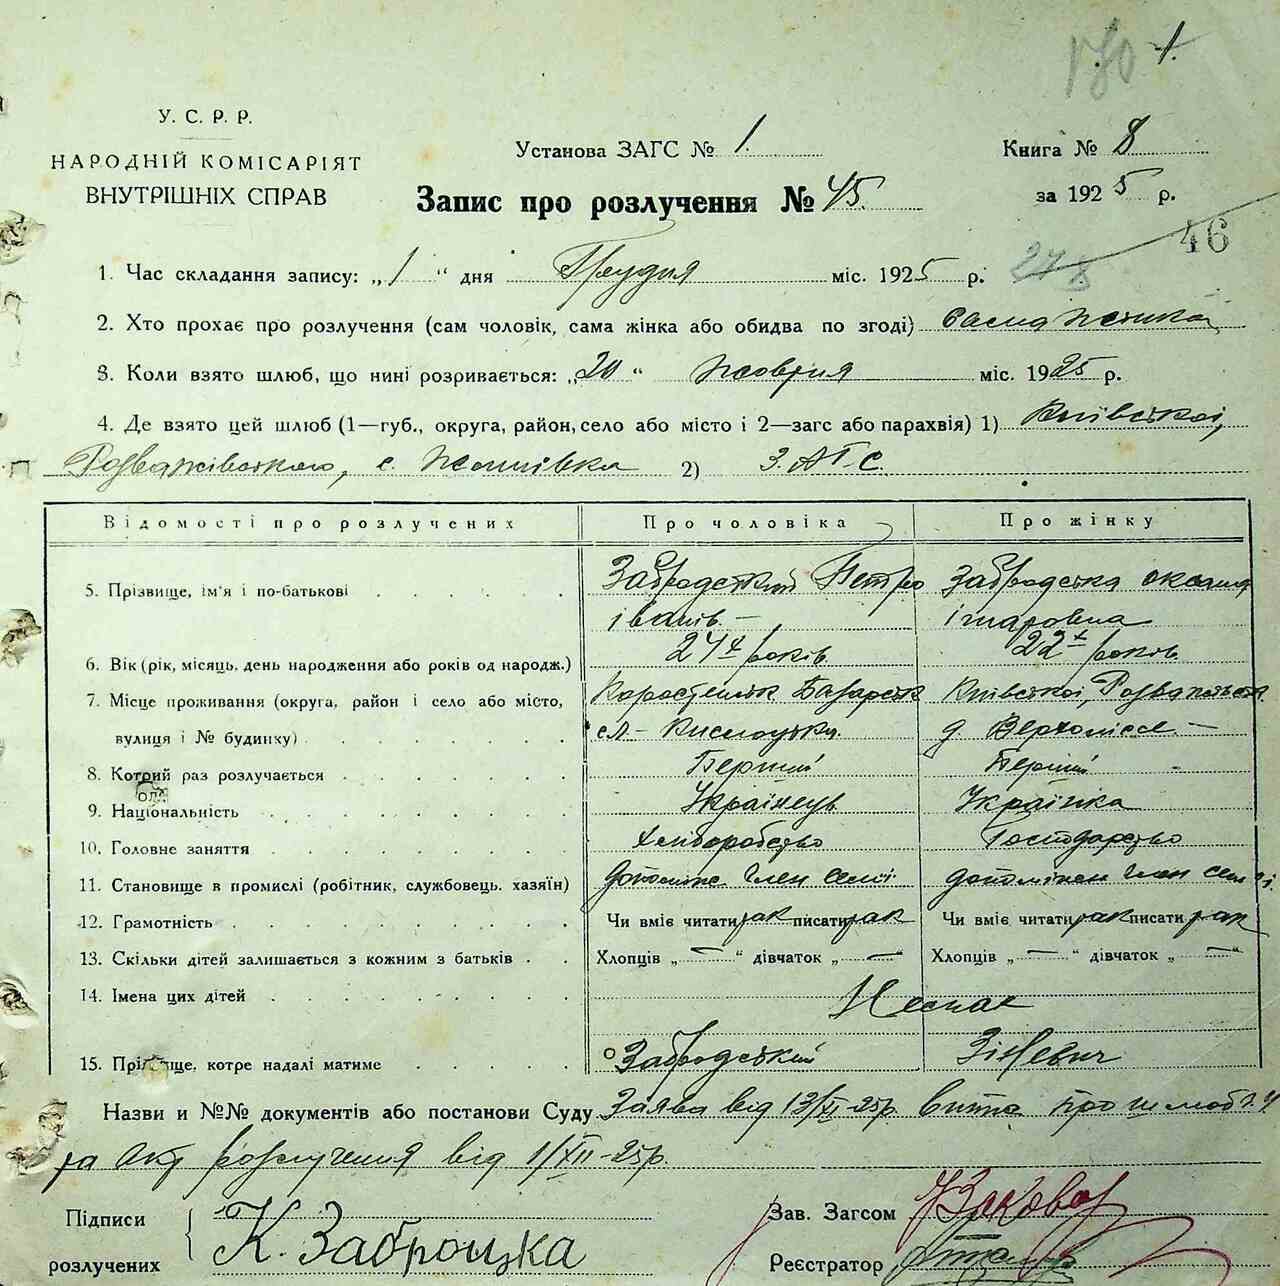 У. С. Р. Р.
НАРОДНІЙ КОМІСАРІЯТ
ВНУТРІШНІХ СПРАВ
Установа ЗАГС № 1.
Книга № 8
Запис про розлучення № 45.
за 1925 р.
46
1. Час складання запису: „1“ дня Грудня міс. 1925 р.
2. Хто прохає про розлучення (сам чоловік, сама жінка або обидва по згоді)
3. Коли взято шлюб, що нині розривається: „20“ Жовтня міс. 1925 р.
4. Де взято цей шлюб (1—губ., округа, район, село або місто і 2—загс або парахвія) 1) Київської,
Розважівського, с. 2) З.АГ.С.
Відомості про розлучених Про чоловіка Про жінку
5. Прізвище, ім'я і по-батькові Забродський Петро Забродська
Іванів.–
6. Вік (рік, місяць, день народження або років од народж.) 24 років. 22 років.
7. Місце проживання (округа, район і село або місто, Базарськ Київської,
вулиця і № будинку) д.
8. Котрий раз розлучається Перший Перший
9. Національність Українець Українка
10. Головне заняття Хліборобство Господарство
11. Становище в промислі (робітник, службовець, хазяїн) член семї член семї
12. Грамотність Чи вміє читати так писати так Чи вміє читати так писати так
13. Скільки дітей залишається з кожним з батьків Хлопців „—“ дівчаток „—“ Хлопців „—“ дівчаток „—“
14. Імена цих дітей
Немає
15. Прізвище, котре надалі матиме Забродський Зіневич
Назви и №№ документів або постанови Суду Заява від 13/XI-25р. про шлюб
та Акт розлучення від 1/XII-25р.
Підписи
розлучених
К. Заброцка
Зав. Загсом
Реєстратор